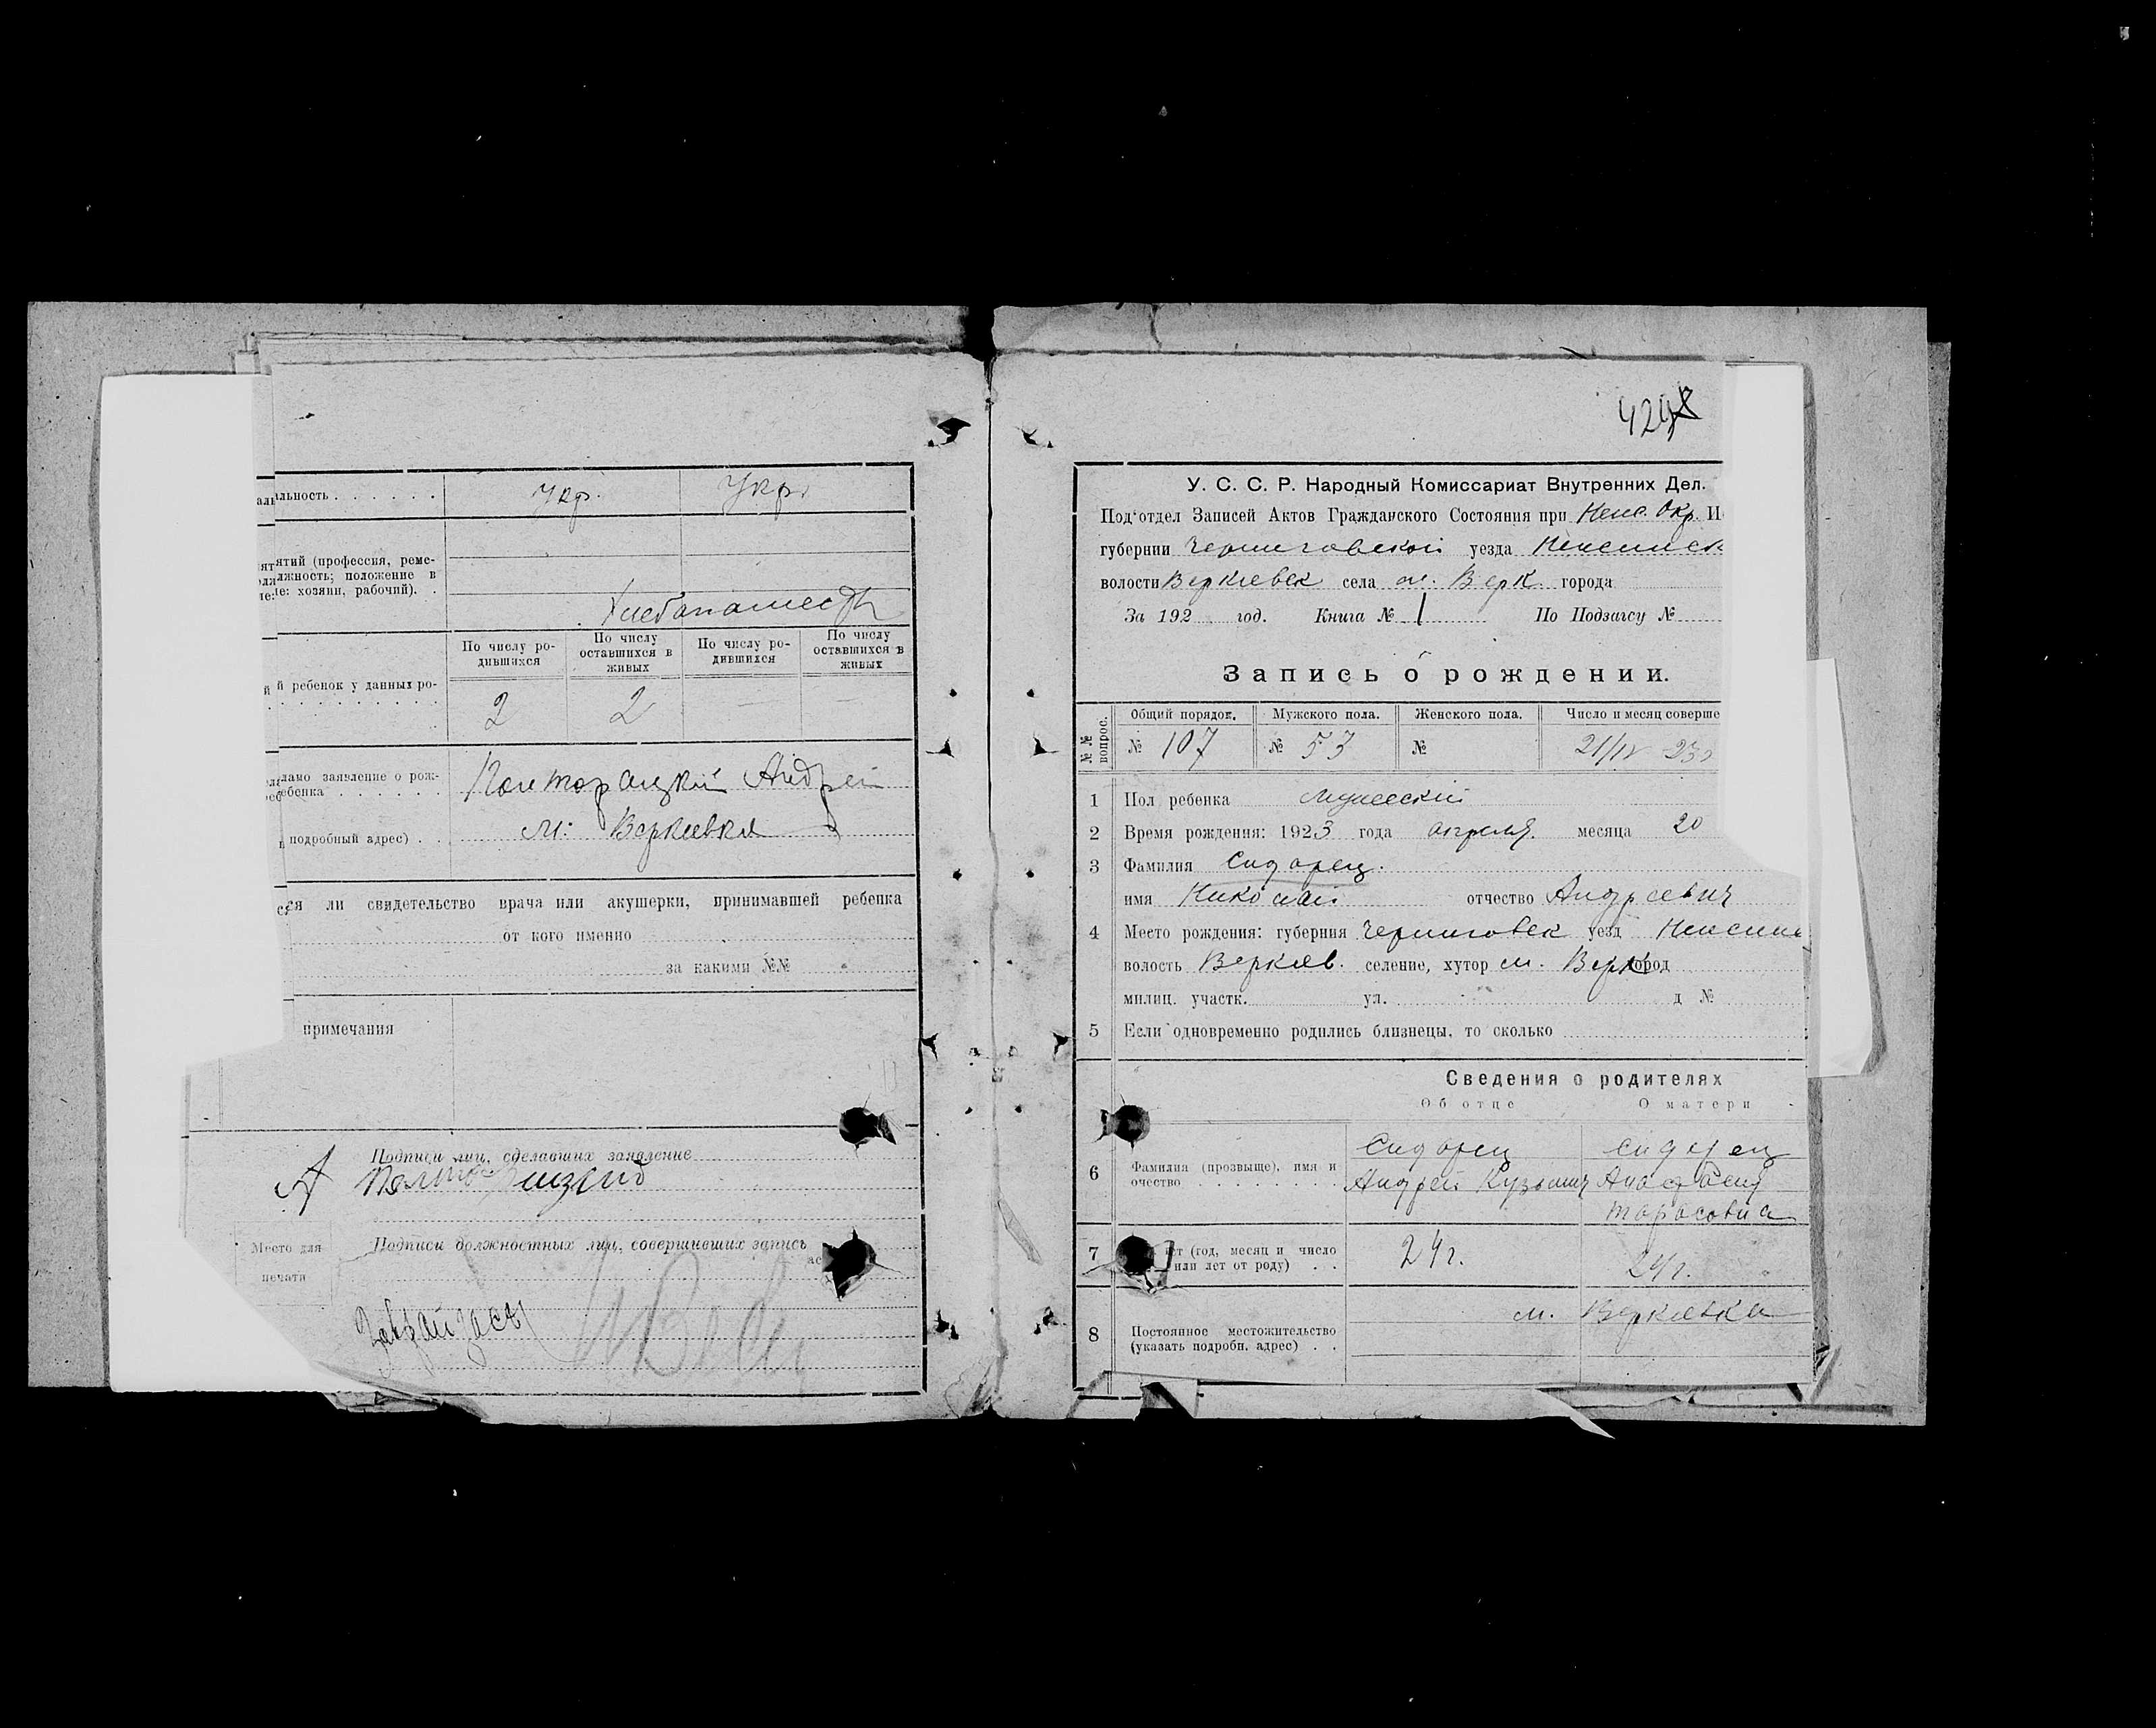 альность . . . . . .
Укр.
Укр.
ятий (профессия, реме-
лжность; положение в
е: хозяин, рабочий). .
Хлебопашеств
По числу ро-
дившихся
По числу
оставшихся в
живых
По числу ро-
дившихся
По числу
оставшихся в
живых
й ребенок у данных ро-
2
2
—
—
дано заявление о рож-
ебенка . . . . . .
Полторацкий Андрей
м. Веркиевка
подробный адрес) . .
ся ли свидетельство врача или акушерки, принимавшей ребенка
от кого именно
за какими №№
примечания
Подписи лиц, сделавших заявление
А
Место для
печати
Подписи должностных лиц, совершивших запись
У. С. С. Р. Народный Комиссариат Внутренних Дел.
Под'отдел Записей Актов Гражданского Состояния при Неж. Окр. И
губернии Черниговской уезда Нежинск
волости Веркиевск села м. Верк. города
За 192 год. Книга № 1 По Подзагсу №
Запись о рождении.
№№ вопрос.
Общий порядок.
Мужского пола.
Женского пола.
Число и месяц соверше
№ 107
№ 53
№
21/IV 23
1 Пол ребенка Мужеский
2 Время рождения: 1923 года апреля месяца 20
3 Фамилия Сидорец.
имя Николай отчество Андреевич
4 Место рождения: губерния Черниговск уезд Нежинс
волость Веркиев. селение, хутор м. Верк город
милиц. участк. ул. д №
5 Если одновременно родились близнецы, то сколько
Сведения о родителях
Об отце
О матери
6 Фамилия (прозвыще), имя и
очество . . . . . . . .
Сидорец
Андрей Кузьмич
Сидорец
Анастасия
Тарасовна
7 ет (год, месяц и число
или лет от роду) . .
24 г.
24 г.
8 Постоянное местожительство
(указать подробн. адрес) . .
м. Веркиевка